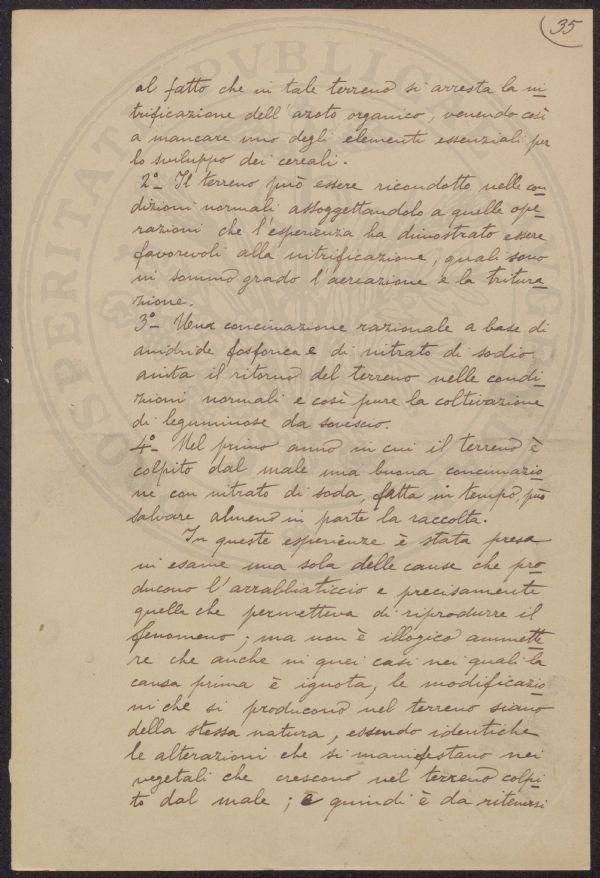 35
al fatto che in tale terreno si arresta la ni
trificazione dell'azoto organico, venendo così
a mancare uno degli elementi essenziali per
lo sviluppo dei cereali.
2º_ Il terreno può essere ricondotto nelle con
dizioni normali assoggettandolo a quelle ope-
razioni che l'esperienza ha dimostrato essere
favorevoli alla nitrificazione, quali sono
in sommo grado l'aereazione e la tritura-
zione.
3º_ Una concimazione razionale a base di
anidride fosforica e di nitrato di sodio
aiuta il ritorno del terreno nelle condi-
zioni normali e così pure la coltivazione
di leguminose da sovescio.
4º_ Nel primo anno in cui il terreno è
colpito dal male una buona concimazio-
ne con nitrato di soda, fatta in tempo, può
salvare almeno in parte la raccolta.
In queste esperienze è stata presa
in esame una sola delle cause che pro-
ducono l'arrabbiaticcio e precisamente
quella che permetteva di riprodurre il
fenomeno; ma non è illogico ammette-
re che anche in quei casi nei quali la
causa prima è ignota, le modificazio-
ni che si producono nel terreno siano
della stessa natura, essendo identiche
le alterazioni che si manifestano nei
vegetali che crescono nel terreno colpi-
to dal male; e quindi è da ritenersi